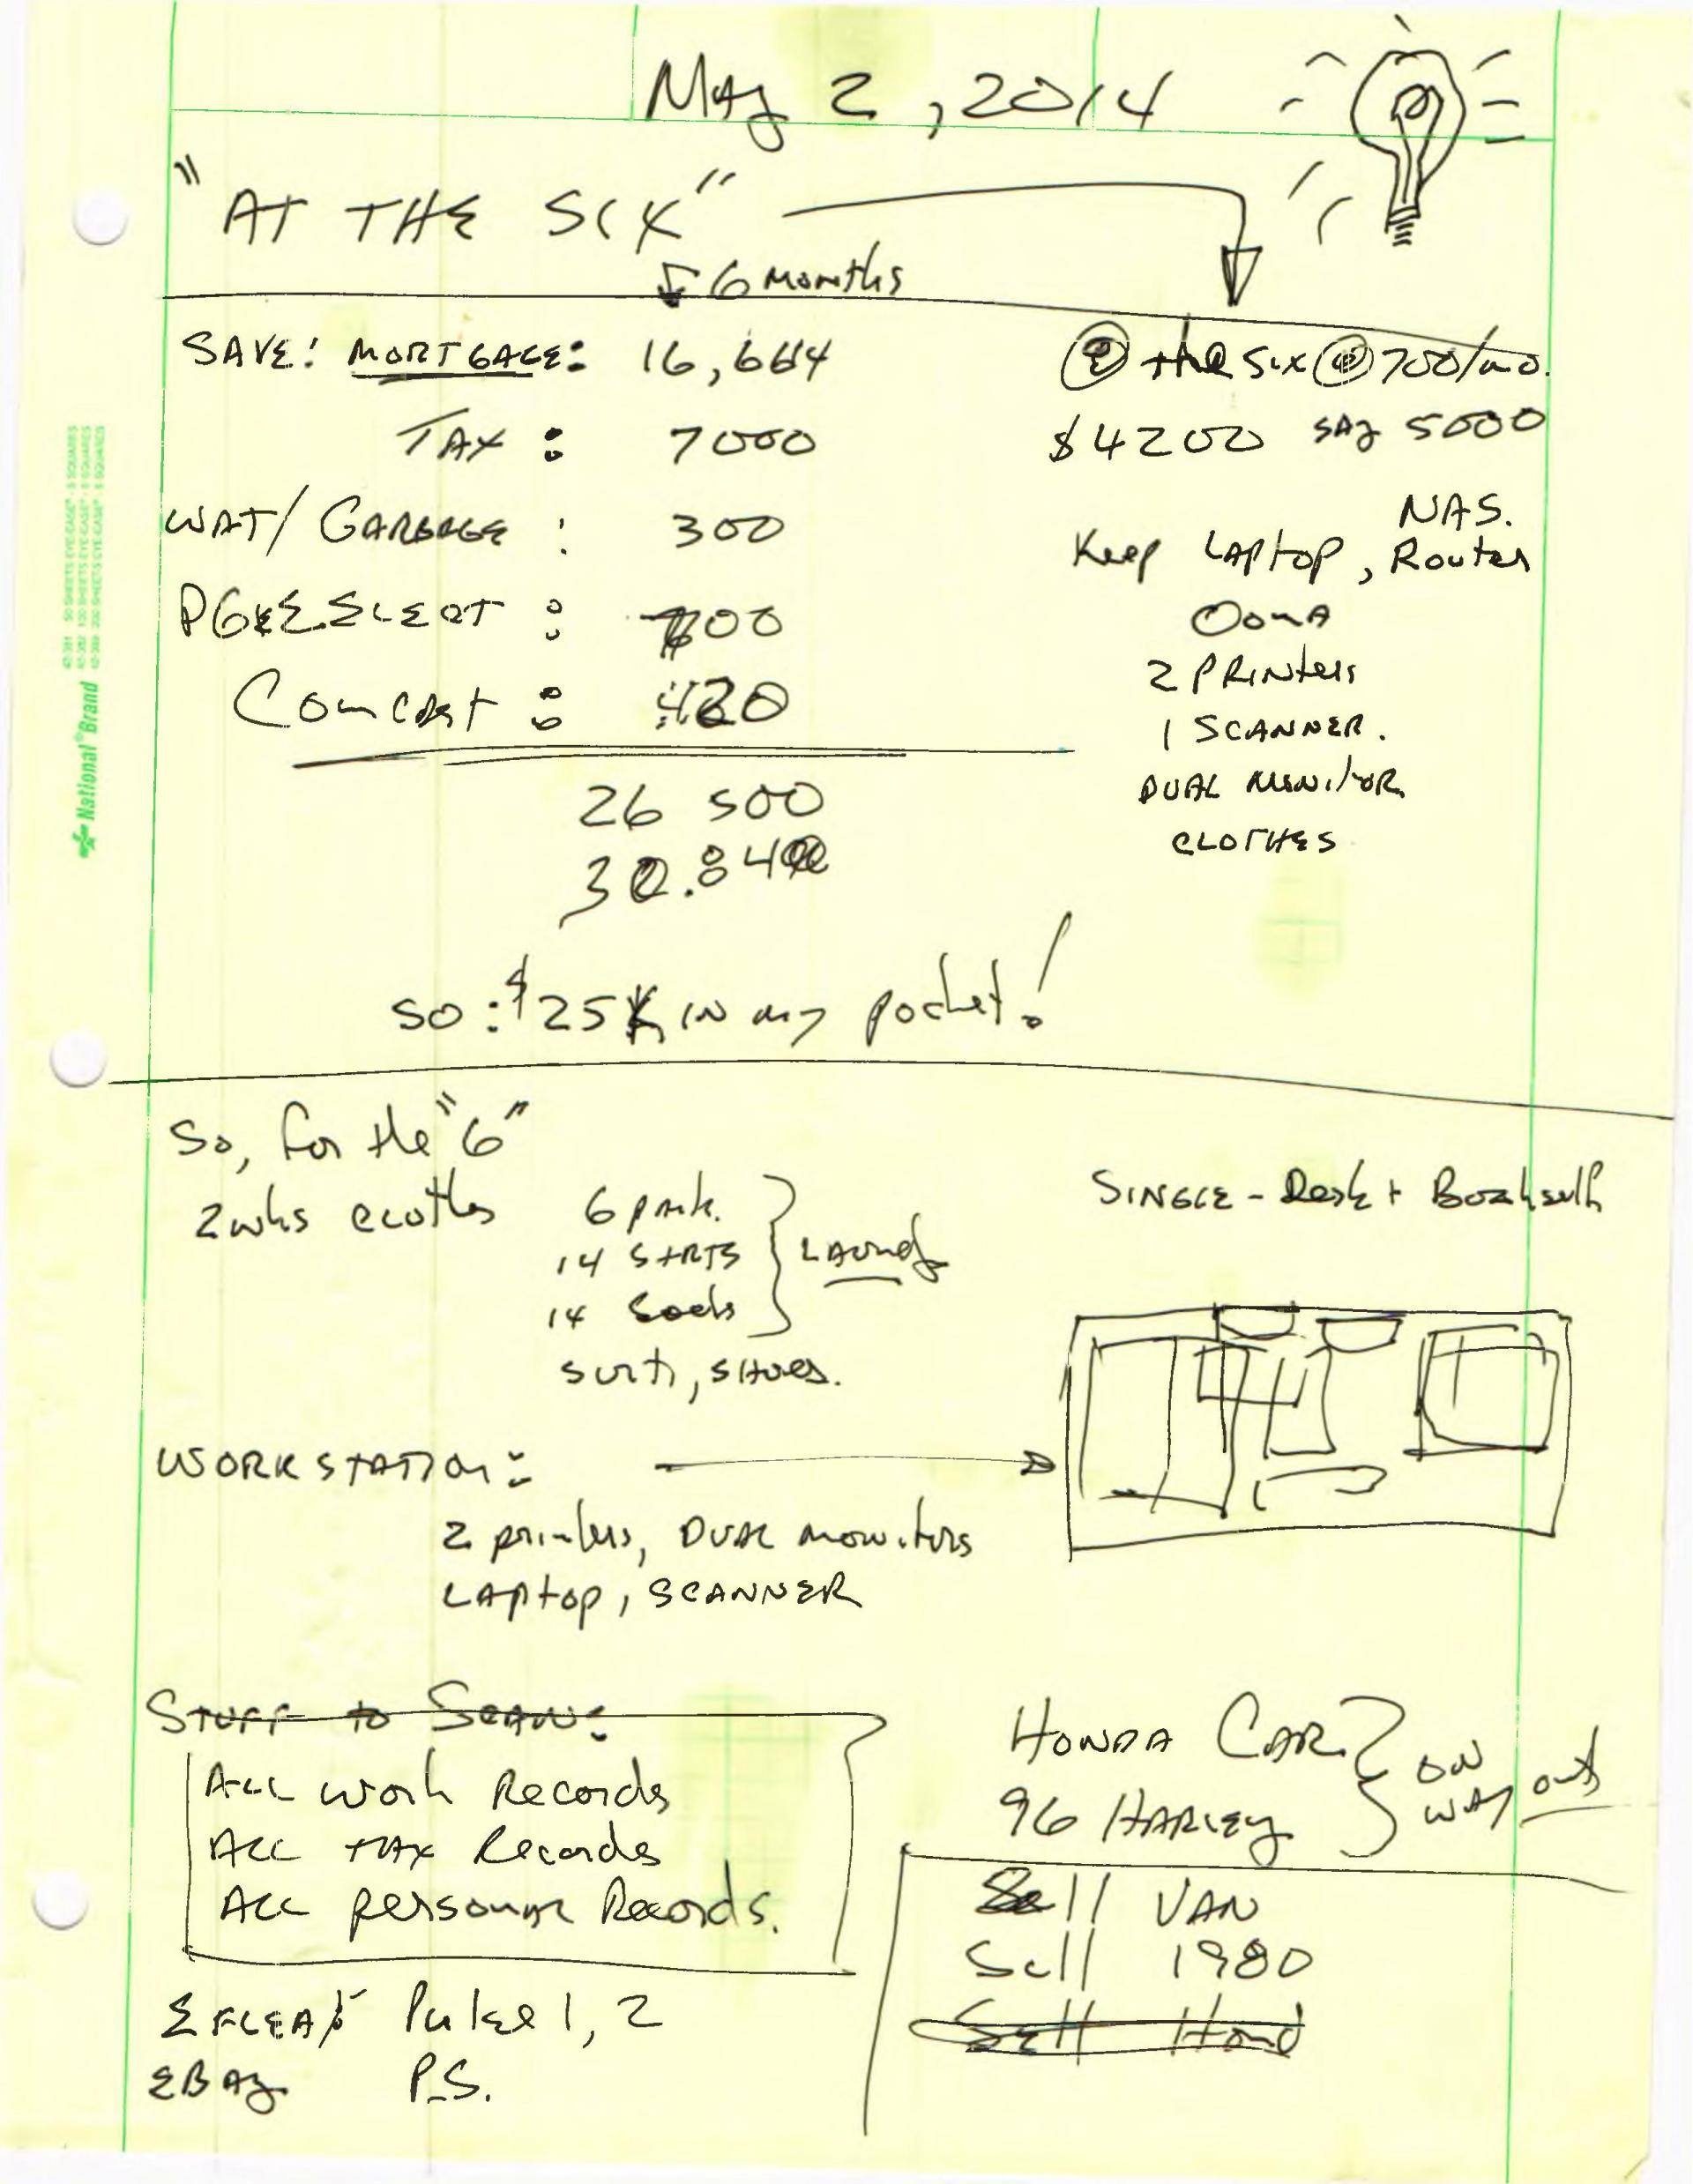 May 2, 2014
"AT THE SIX"
6 months
SAVE: MORTGAGE: 16,664
@ the six @ 700/mo.
TAX : 7000
$4200 say 5000
WAT/GARBAGE : 300
NAS.
Keep LAptop, Router
PG&E ELECT : 00
OomA
2 PRINters
Comcast :
1 SCANNER.
DUAL MONITOR
CLOTHES
26 500
30.84
so: $25K in my pocket!
So, for the "6"
2 wks clothes
6 pnk.
14 SHRTS
14 Socks
LAundy
suits, SHoes.
SINGLE - Desk + Bookshelf
WORKSTATION:
2 printers, DUAL monitors
LAptop, SCANNER
STUFF to SCAN:
ALL work Records
ALL TAX Records
ALL personal Records.
HONDA CAR
96 HARLEy
ON WAY out
Sell VAN
Sell 1980
Sell Hond
EBAy P.S.
National® Brand